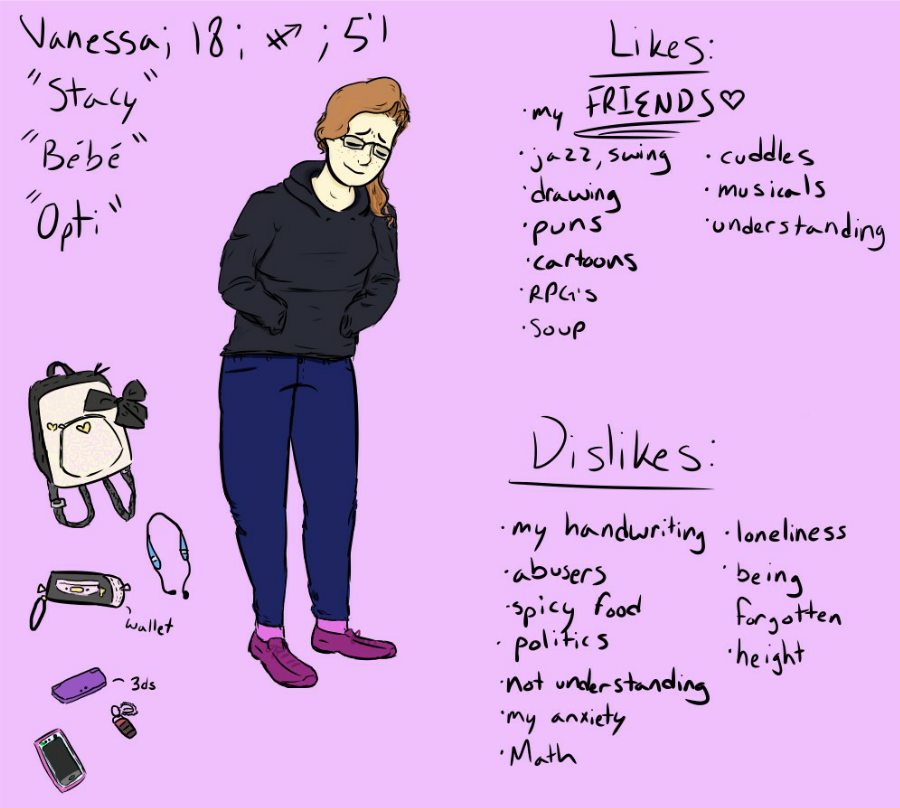 Vanessa; 18; ♐; 5'1
"Stacy"
"Bébé"
"Opti"
Likes:
· my FRIENDS♡
· jazz, swing
· drawing
· puns
· cartoons
· RPG's
· Soup
· cuddles
· musicals
· understanding
Dislikes:
· my handwriting
· abusers
· spicy food
· politics
· not understanding
· my anxiety
· Math
· loneliness
· being
forgotten
· height
wallet
3ds